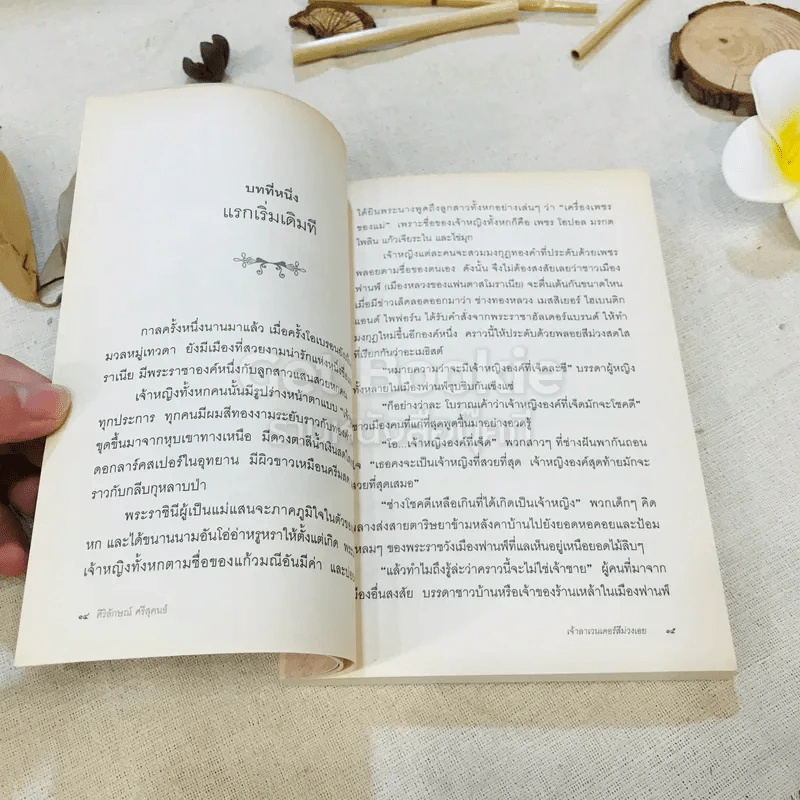 บทที่หนึ่ง
แรกเริ่มเดิมที
กาลครั้งหนึ่งนานมาแล้ว เมื่อครั้งโอเบรอนยัง
มวลหมู่เทวดา ยังมีเมืองที่สวยงามน่ารักแห่งหนึ่งชื่อ
ราเนีย มีพระราชาองค์หนึ่งกับลูกสาวแสนสวยหกคน
เจ้าหญิงทั้งหกคนนั้นมีรูปร่างหน้าตาแบบ
ทุกประการ ทุกคนมีผมสีทองงามระยับราวกับทอง
ขุดขึ้นมาจากหุบเขาทางเหนือ มีดวงตาสีน้ำเงินสดใส
ดอกลาร์คสเปอร์ในอุทยาน มีผิวขาวเหมือนครีมสด
ราวกับกลีบกุหลาบป่า
พระราชินีผู้เป็นแม่แสนจะภาคภูมิใจในตัว
หก และได้ขนานนามอันโอ่อ่าหรูหราให้ตั้งแต่เกิด
เจ้าหญิงทั้งหกตามชื่อของแก้วมณีอันมีค่า และ
๑๔ ศิวิลักษณ์ ศรีสุคนธ์
ได้ยินพระนางพูดถึงลูกสาวทั้งหกอย่างเล่นๆ ว่า “เครื่องเพชร
ของแม่” เพราะชื่อของเจ้าหญิงทั้งหกก็คือ เพชร โอปอล มรกต
ไพลิน แก้วเจียระไน และไข่มุก
เจ้าหญิงแต่ละคนจะสวมมงกุฎทองคำที่ประดับด้วยเพชร
พลอยตามชื่อของตนเอง ดังนั้น จึงไม่ต้องสงสัยเลยว่าชาวเมือง
ฟานพี้ (เมืองหลวงของแฟนตาสโมราเนีย) จะตื่นเต้นกันขนาดไหน
เมื่อมีข่าวเล็ดลอดออกมาว่า ช่างทองหลวง เมสสิเยอร์ ไฮเบนดิก
แอนด์ ไพฟอร์น ได้รับคำสั่งจากพระราชาฮัลเดอร์แบรนด์ ให้ทำ
มงกุฎใหม่ขึ้นอีกองค์หนึ่ง คราวนี้ให้ประดับด้วยพลอยสีม่วงสดใส
ที่เรียกกันว่าอะเมธิสต์
“หมายความว่าจะมีเจ้าหญิงองค์ที่เจ็ดละซี” บรรดาผู้หญิง
ทั้งหลายในเมืองฟานพี้ซุบซิบกันเซ็งแซ่
“ก็อย่างว่าละ โบราณเค้าว่าเจ้าหญิงองค์ที่เจ็ดมักจะโชคดี”
ชาวเมืองคนที่แก่ที่สุดพูดขึ้นมาอย่างอวดรู้
“โอ...เจ้าหญิงองค์ที่เจ็ด” พวกสาวๆ ที่ช่างฝันพากันถอน
ใจ “เธอคงจะเป็นเจ้าหญิงที่สวยที่สุด เจ้าหญิงองค์สุดท้ายมักจะ
สวยที่สุดเสมอ”
“ช่างโชคดีเหลือเกินที่ได้เกิดเป็นเจ้าหญิง” พวกเด็กๆ คิด
พลางส่งสายตาริษยาข้ามหลังคาบ้านไปยังยอดหอคอยและป้อม
แหลมๆ ของพระราชวังเมืองฟานพี้ที่แลเห็นอยู่เหนือยอดไม้ลิบๆ
“แล้วทำไมถึงรู้ล่ะว่าคราวนี้จะไม่ใช่เจ้าชาย” ผู้คนที่มาจาก
เมืองอื่นสงสัย บรรดาชาวบ้านหรือเจ้าของร้านเหล้าในเมืองฟานพี้
เจ้าลาเวนเดอร์สีม่วงเอย ๑๕